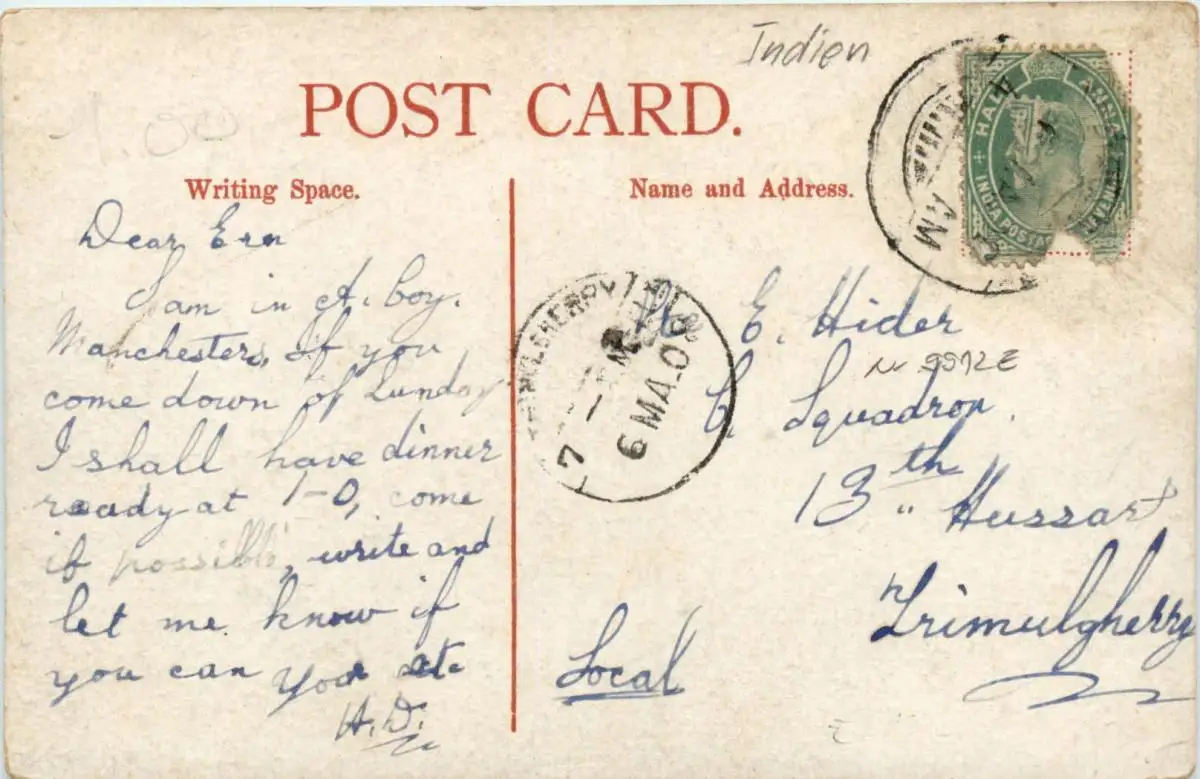 Indien
POST CARD.
Writing Space.
Name and Address.
Dear Ern
I am in A. boy.
Manchesters, if you
come down of Sunday
I shall have dinner
ready at 1-0, come
if possible, write and
let me know if
you can
H.D.
E. Hider
C. Squadron.
13th Hussars
Trimulgherry
Local
HALF ANNA
INDIA POSTAGE
AM
7
6 MA.08